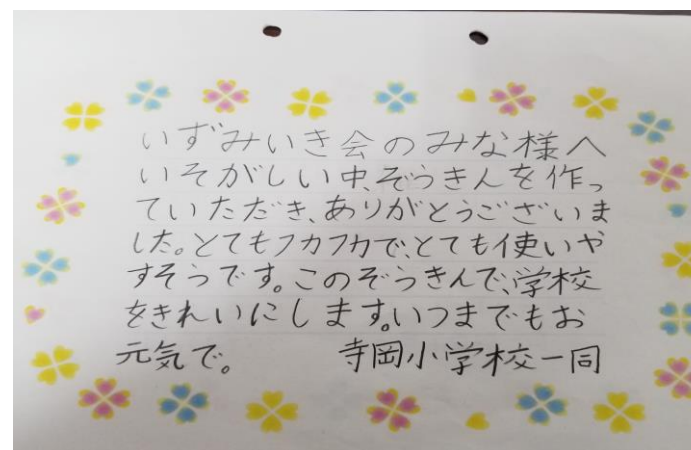 いずみいき会のみな様へ
いそがしい中、ぞうきんを作っ
ていただき、ありがとうございま
した。とてもフカフカで、とても使いや
すそうです。このぞうきんで、学校
をきれいにします。いつまでもお
元気で。 寺岡小学校一同